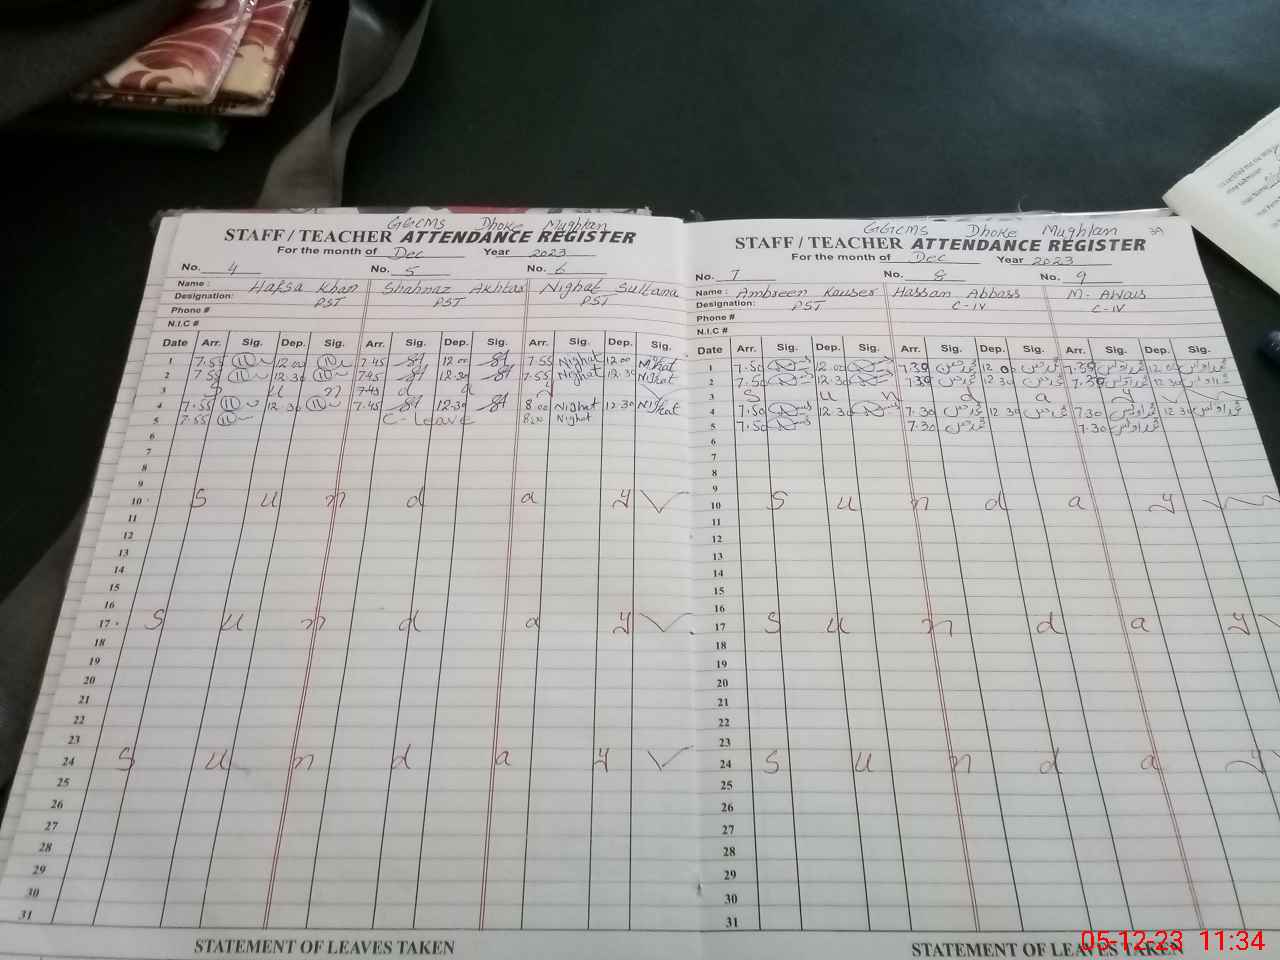 GGCMS Dhoke Mughlan
STAFF / TEACHER ATTENDANCE REGISTER
For the month of Dec Year 2023
No. 4 No. 5 No. 6
Name: Hafsa Khan Shahnaz Akhtar Nighat Sultana
Designation: PST PST PST
Phone #
N.I.C #
Date Arr. Sig. Dep. Sig. Arr. Sig. Dep. Sig. Arr. Sig. Dep. Sig.
1 7.55 12.00 7.45 12.00 7.55 Nighat 12.00 Nighat
2 12.30 7.45 12.30 7.55 Nighat 12.30 Nighat
3 S u n d a y
4 7.55 12.30 7.45 12.30 8.00 Nighat 12.30 Nighat
5 7.55 C-leave 8.20 Nighat
6
7
8
9
10 S u n d a y
11
12
13
14
15
16
17 S u n d a y
18
19
20
21
22
23
24 S u n d a y
25
26
27
28
29
30
31
STATEMENT OF LEAVES TAKEN
GGCMS Dhoke Mughlan 39
STAFF / TEACHER ATTENDANCE REGISTER
For the month of Dec Year 2023
No. 7 No. 8 No. 9
Name: Ambreen Kauser Hassam Abbass M. Awais
Designation: PST C-IV C-IV
Phone #
N.I.C #
Date Arr. Sig. Dep. Sig. Arr. Sig. Dep. Sig. Arr. Sig. Dep. Sig.
1 7.50 12.00 7.30 12.00 7.30 12.00
2 7.50 12.30 7.30 12.30 7.30 12.30
3 S u n d a y
4 7.50 12.30 7.30 12.30 7.30 12.30
5 7.50 7.30 7.30
6
7
8
9
10 S u n d a y
11
12
13
14
15
16
17 S u n d a y
18
19
20
21
22
23
24 S u n d a y
25
26
27
28
29
30
31
STATEMENT OF LEAVES TAKEN
05-12-23 11:34